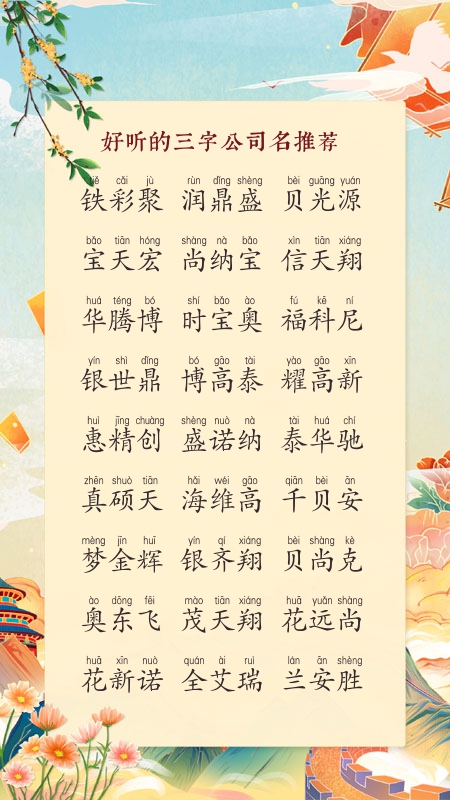 好听的三字公司名推荐
tiě cǎi jù rùn dǐng shèng bèi guāng yuán
铁彩聚 润鼎盛 贝光源
bǎo tiān hóng shàng nà bǎo xìn tiān xiáng
宝天宏 尚纳宝 信天翔
huá téng bó shí bǎo ào fú kē ní
华腾博 时宝奥 福科尼
yín shì dǐng bó gāo tài yào gāo xīn
银世鼎 博高泰 耀高新
huì jīng chuàng shèng nuò nà tài huá chí
惠精创 盛诺纳 泰华驰
zhēn shuò tiān hǎi wéi gāo qiān bèi ān
真硕天 海维高 千贝安
mèng jīn huī yín qí xiáng bèi shàng kè
梦金辉 银齐翔 贝尚克
ào dōng fēi mào tiān xiáng huā yuǎn shàng
奥东飞 茂天翔 花远尚
huā xīn nuò quán ài ruì lán ān shèng
花新诺 全艾瑞 兰安胜